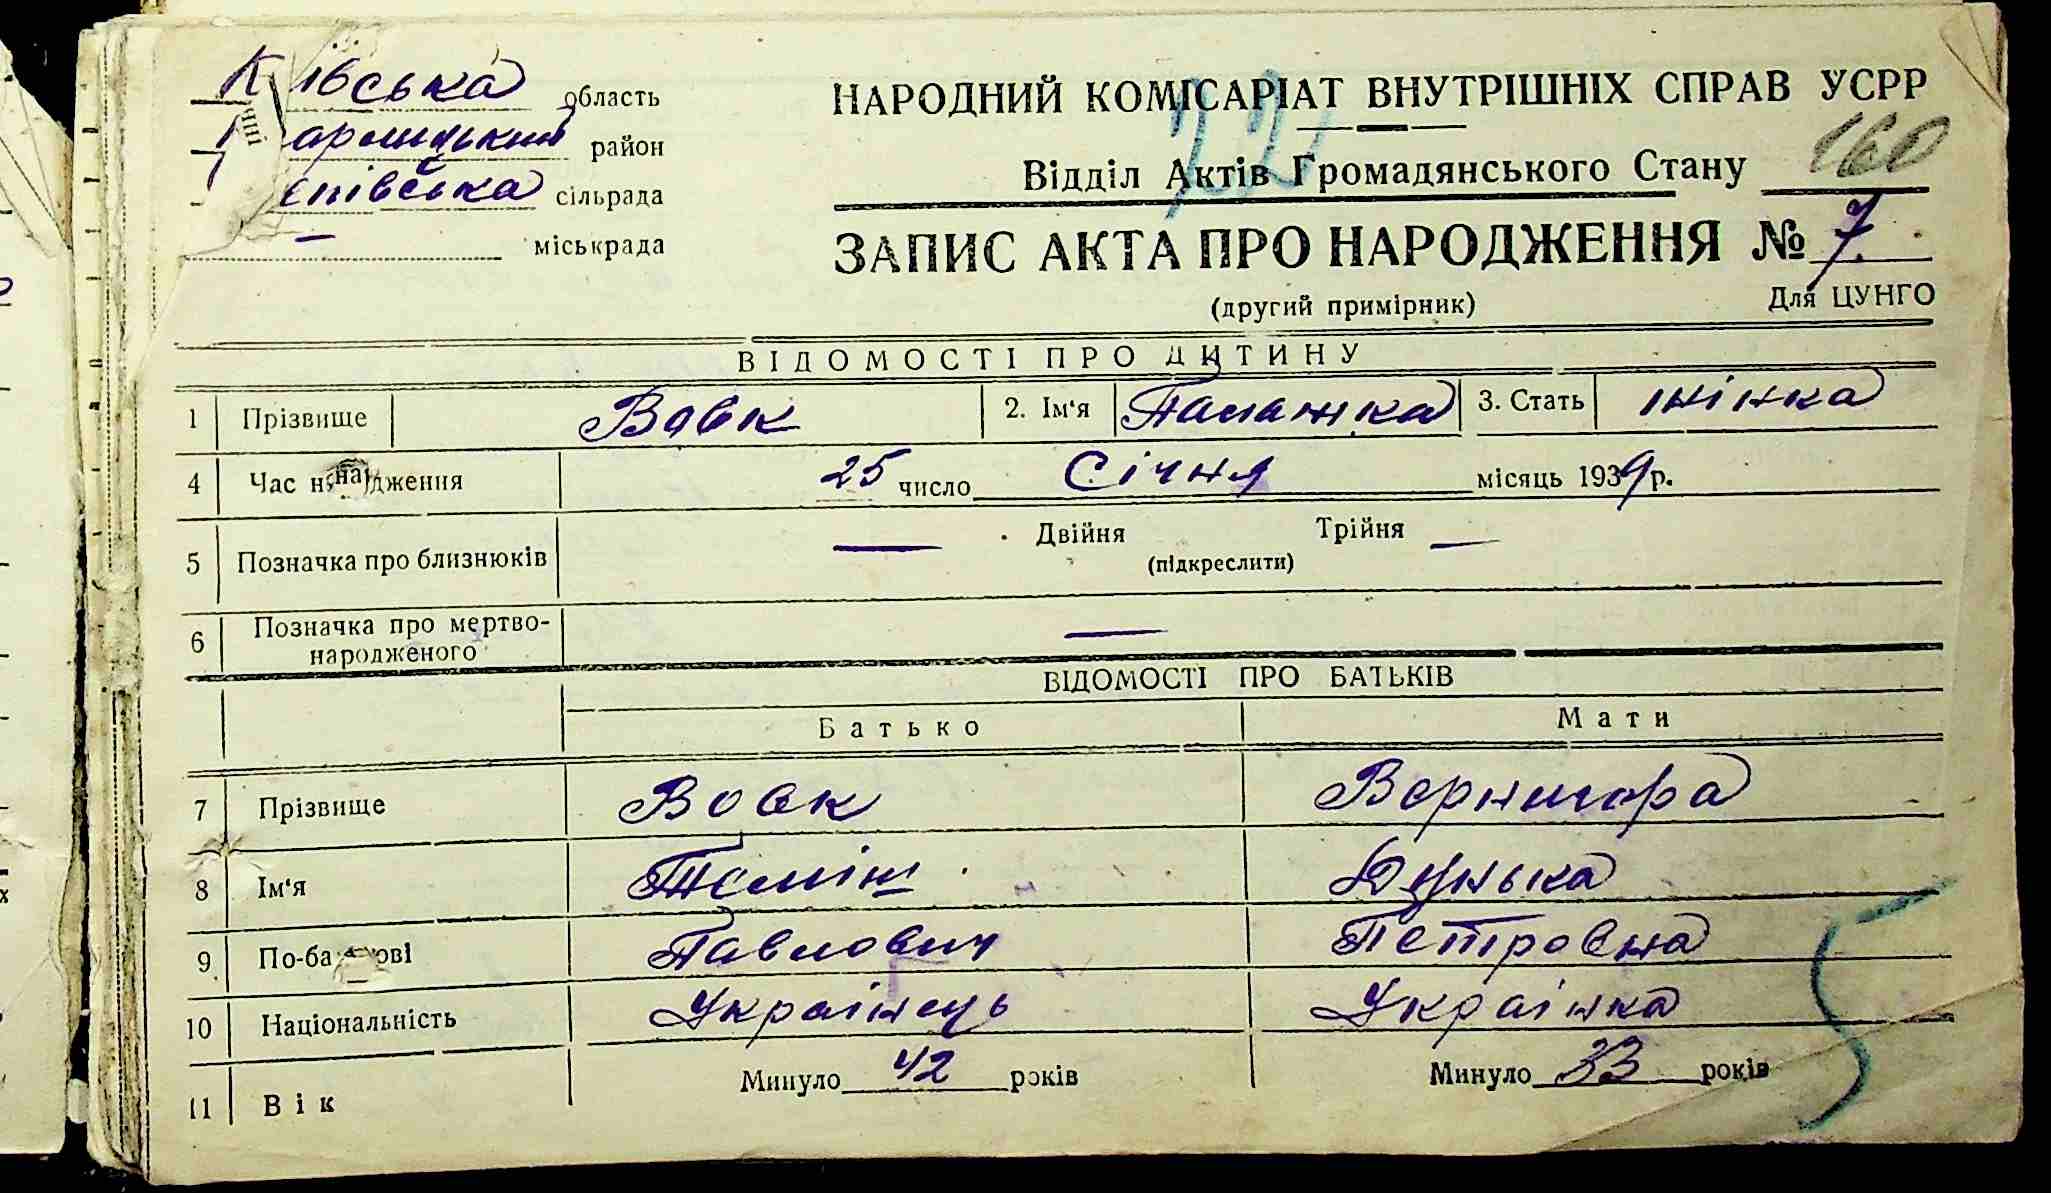 Київська область
Кагарлицький район
сільрада
— міськрада
НАРОДНИЙ КОМІСАРІАТ ВНУТРІШНІХ СПРАВ УСРР
Відділ Актів Громадянського Стану 160
ЗАПИС АКТА ПРО НАРОДЖЕННЯ № 7.
(другий примірник) Для ЦУНГО
ВІДОМОСТІ ПРО ДИТИНУ
1 Прізвище Вовк 2. Ім'я Палажка 3. Стать жінка
4 Час народження 25 число Січня місяць 1939 р.
5 Позначка про близнюків — Двійня Трійня —
(підкреслити)
6 Позначка про мертво-
народженого —
ВІДОМОСТІ ПРО БАТЬКІВ
Батько Мати
7 Прізвище Вовк Вернигора
8 Ім'я Танька
9 По-батькові Павлович Петровна
10 Національність Українець Українка
11 Вік Минуло 42 років Минуло 33 років